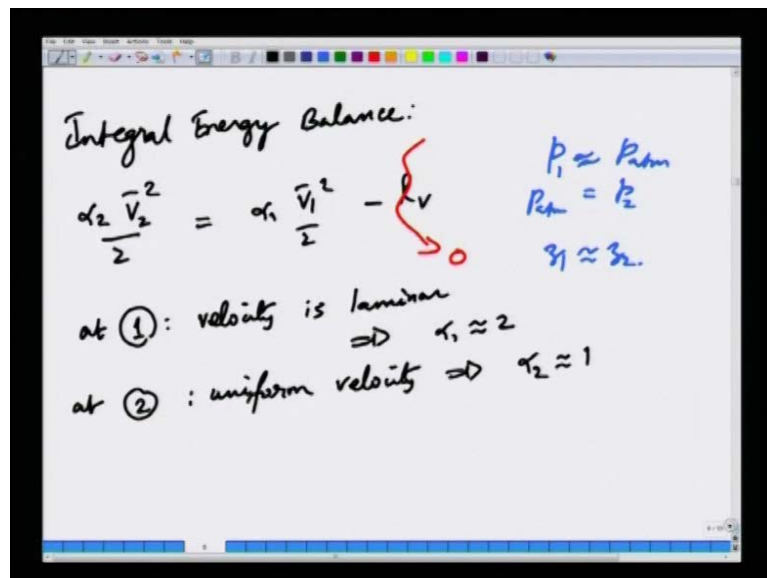 File Edit View Insert Actions Tools Help
Integral Energy Balance:
α₂ V̄₂²/2 = α₁ V̄₁²/2 - l_v
0
P₁ ≈ Patm
Patm = P₂
z₁ ≈ z₂.
at ①: velocity is laminar
⇒ α₁ ≈ 2
at ②: uniform velocity ⇒ α₂ ≈ 1